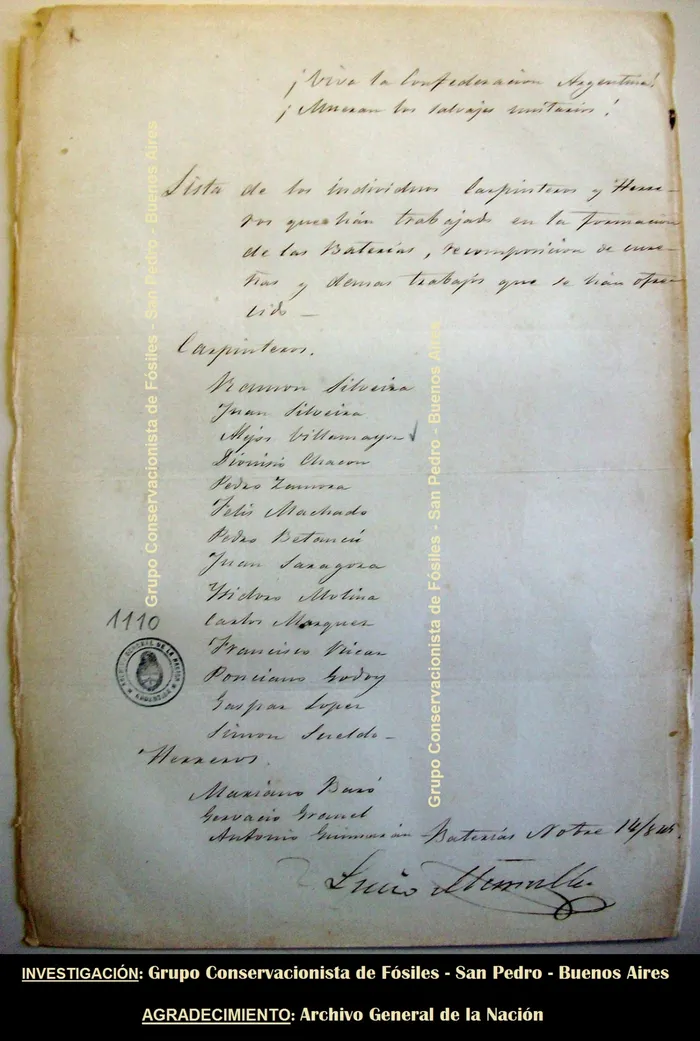 ¡Viva la Confederacion Argentina!
¡Mueran los salvajes unitarios!
Lista de los individuos Carpinteros y Herre-
ros que han trabajado en la formacion
de las Baterias, recomposicion de cure-
ñas y demas trabajos que se han ofre-
cido –
Carpinteros.
Ramon Silveira
Juan Silveira
Villamayor
Dionisio Chacon
Pedro Zamora
Felis Machado
Pedro Betancú
Juan Saragosa
Ysidoro Molina
Carlos Marquez
Francisco
Ponciano Godoy
Gaspar Lopez
Simon
1110
ARCHIVO GENERAL DE LA NACION
Herreros.
Mariano Baró
Gervacio
Antonio Baterias Nobre 14/845
Lucio Mansilla
Grupo Conservacionista de Fósiles - San Pedro - Buenos Aires
Grupo Conservacionista de Fósiles - San Pedro - Buenos Aires
INVESTIGACIÓN: Grupo Conservacionista de Fósiles - San Pedro - Buenos Aires
AGRADECIMIENTO: Archivo General de la Nación